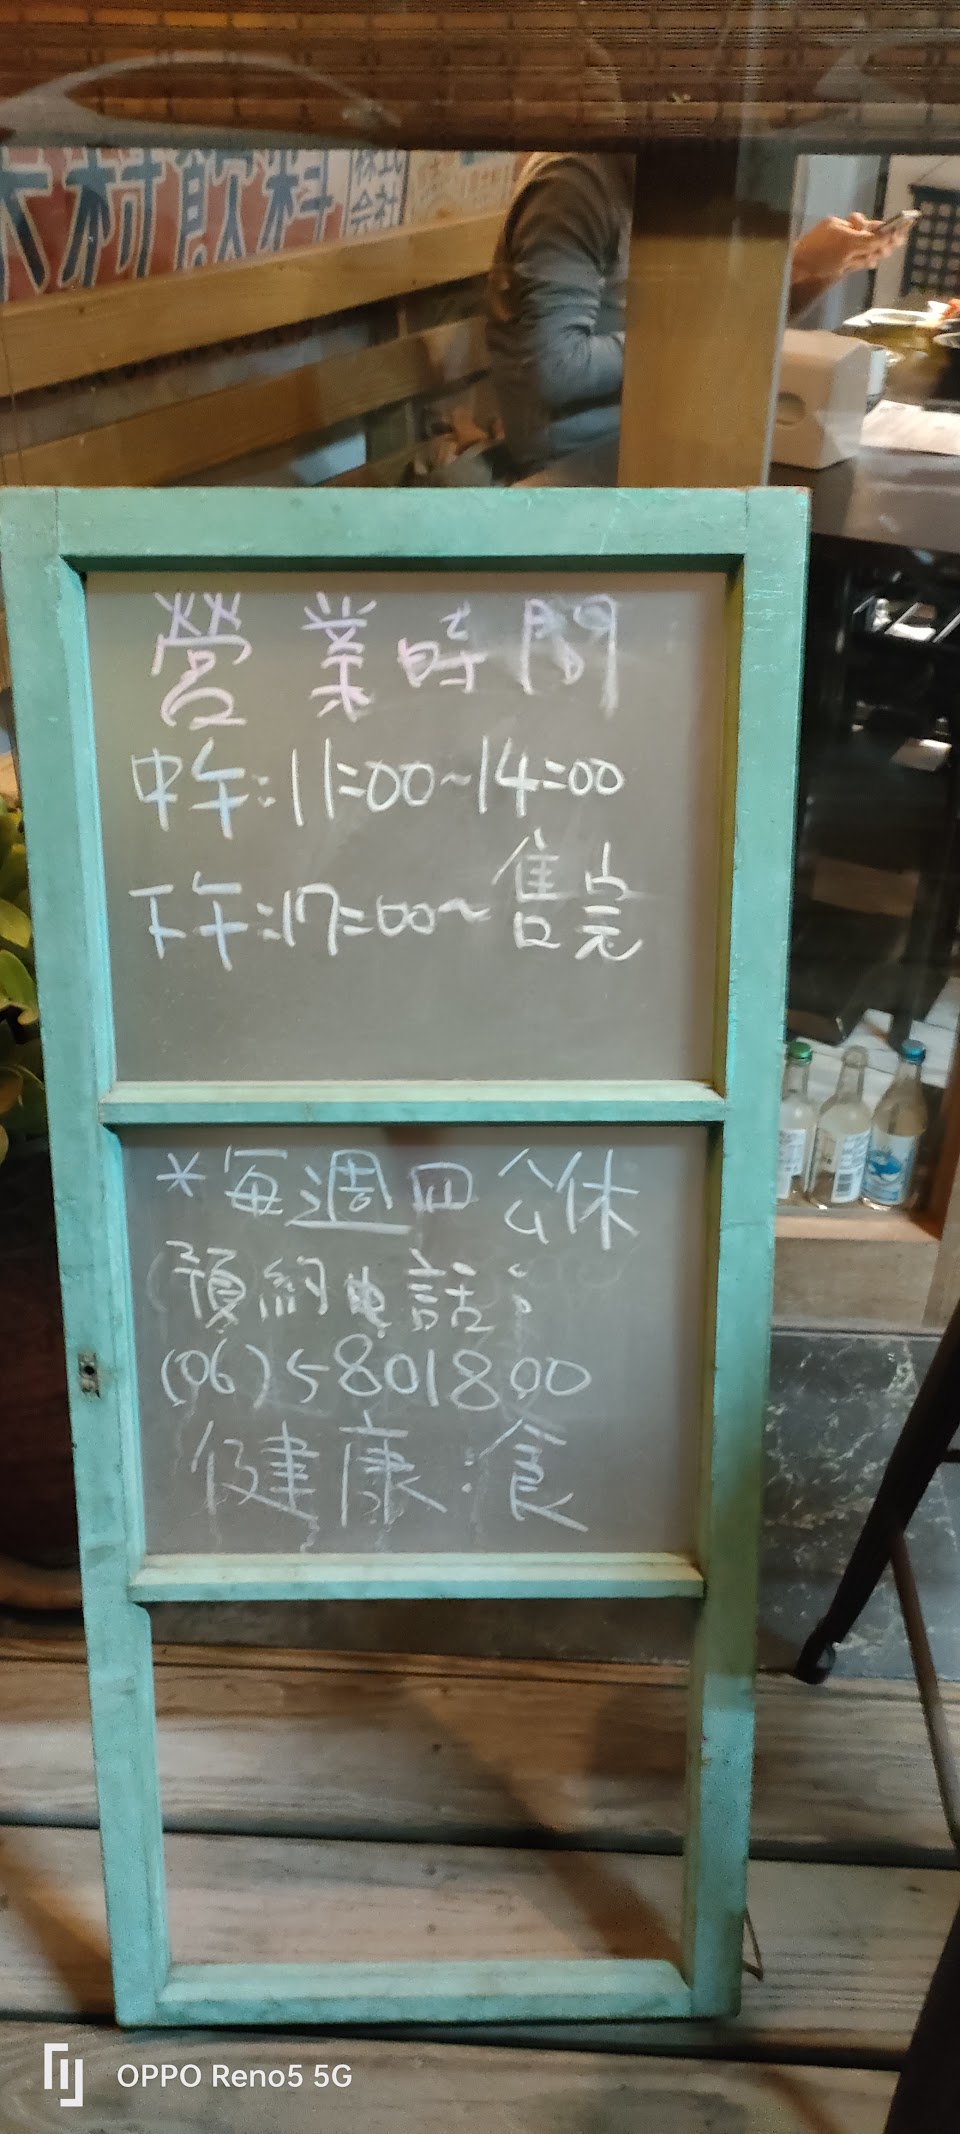 飲料
株式
会社
營業時間
中午:11:00~14:00
下午:17:00~售完
*每週四公休
預約電話:
(06)5801800
健康食
OPPO Reno5 5G